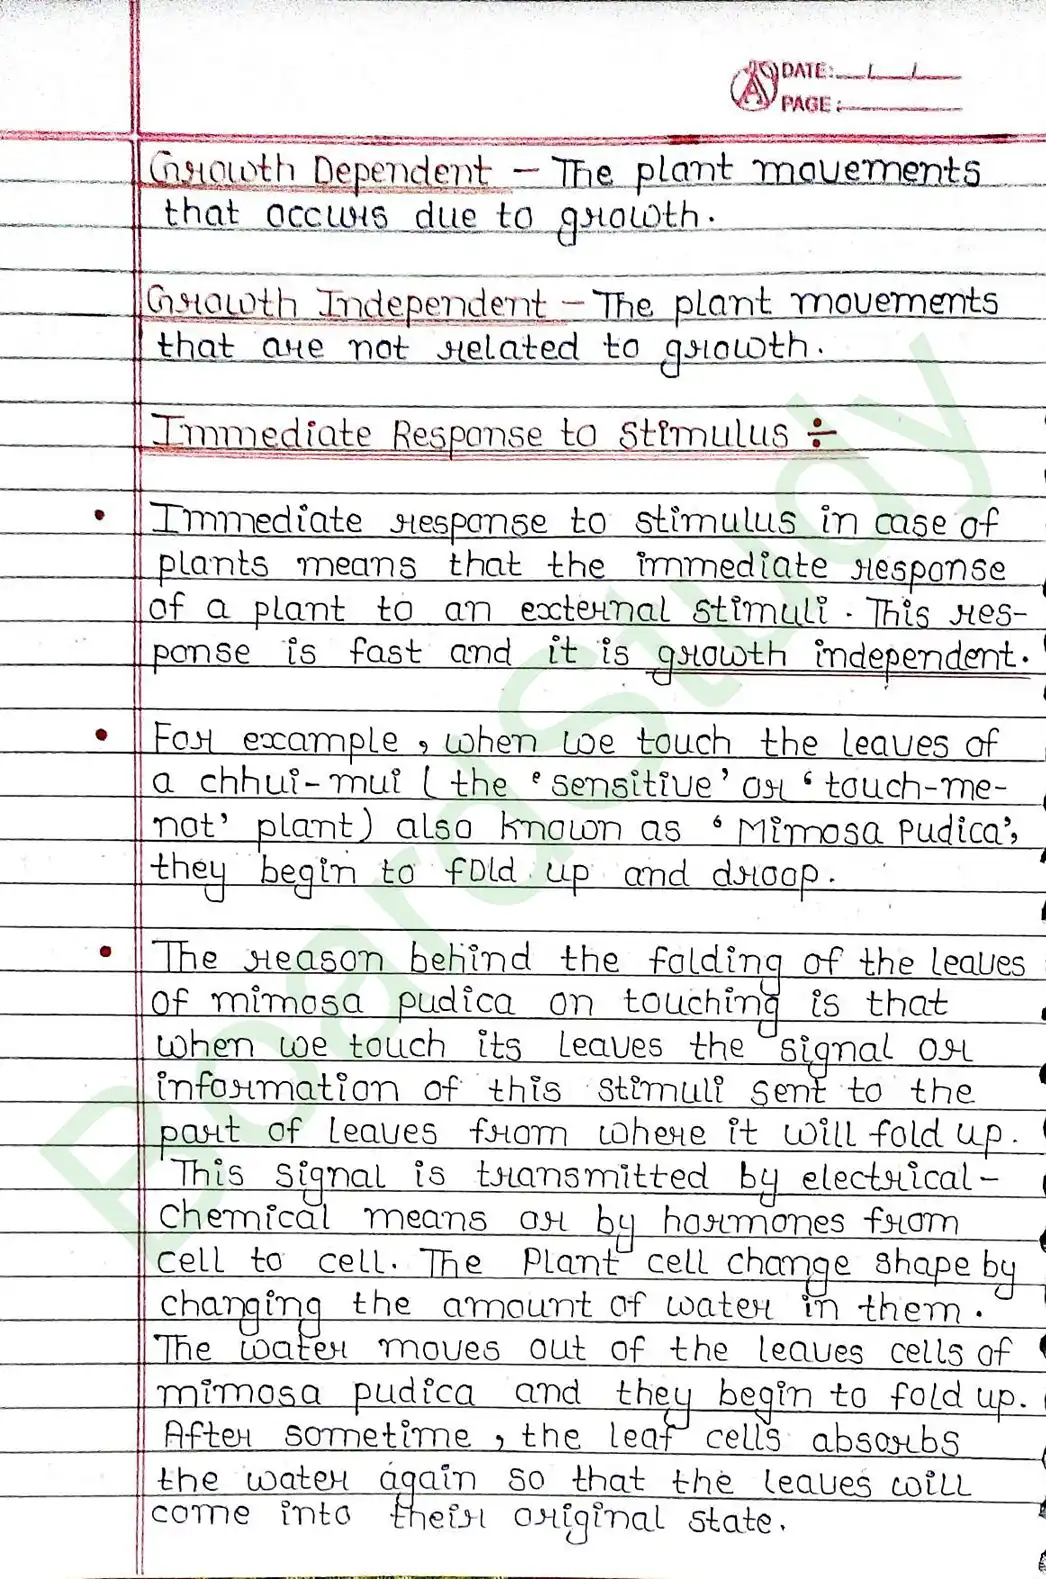 DATE:
PAGE:
Growth Dependent – The plant movements
that occurs due to growth.
Growth Independent – The plant movements
that are not related to growth.
Immediate Response to Stimulus ÷
• Immediate response to stimulus in case of
plants means that the immediate response
of a plant to an external stimuli. This res-
ponse is fast and it is growth independent.
• For example, when we touch the leaves of
a chhui-mui (the 'sensitive' or 'touch-me-
not' plant) also known as 'Mimosa Pudica',
they begin to fold up and droop.
• The reason behind the folding of the leaves
of mimosa pudica on touching is that
when we touch its leaves the signal or
information of this stimuli sent to the
part of leaves from where it will fold up.
This signal is transmitted by electrical-
chemical means or by hormones from
cell to cell. The Plant cell change shape by
changing the amount of water in them.
The water moves out of the leaves cells of
mimosa pudica and they begin to fold up.
After sometime, the leaf cells absorbs
the water again so that the leaves will
come into their original state.
BoardStudy